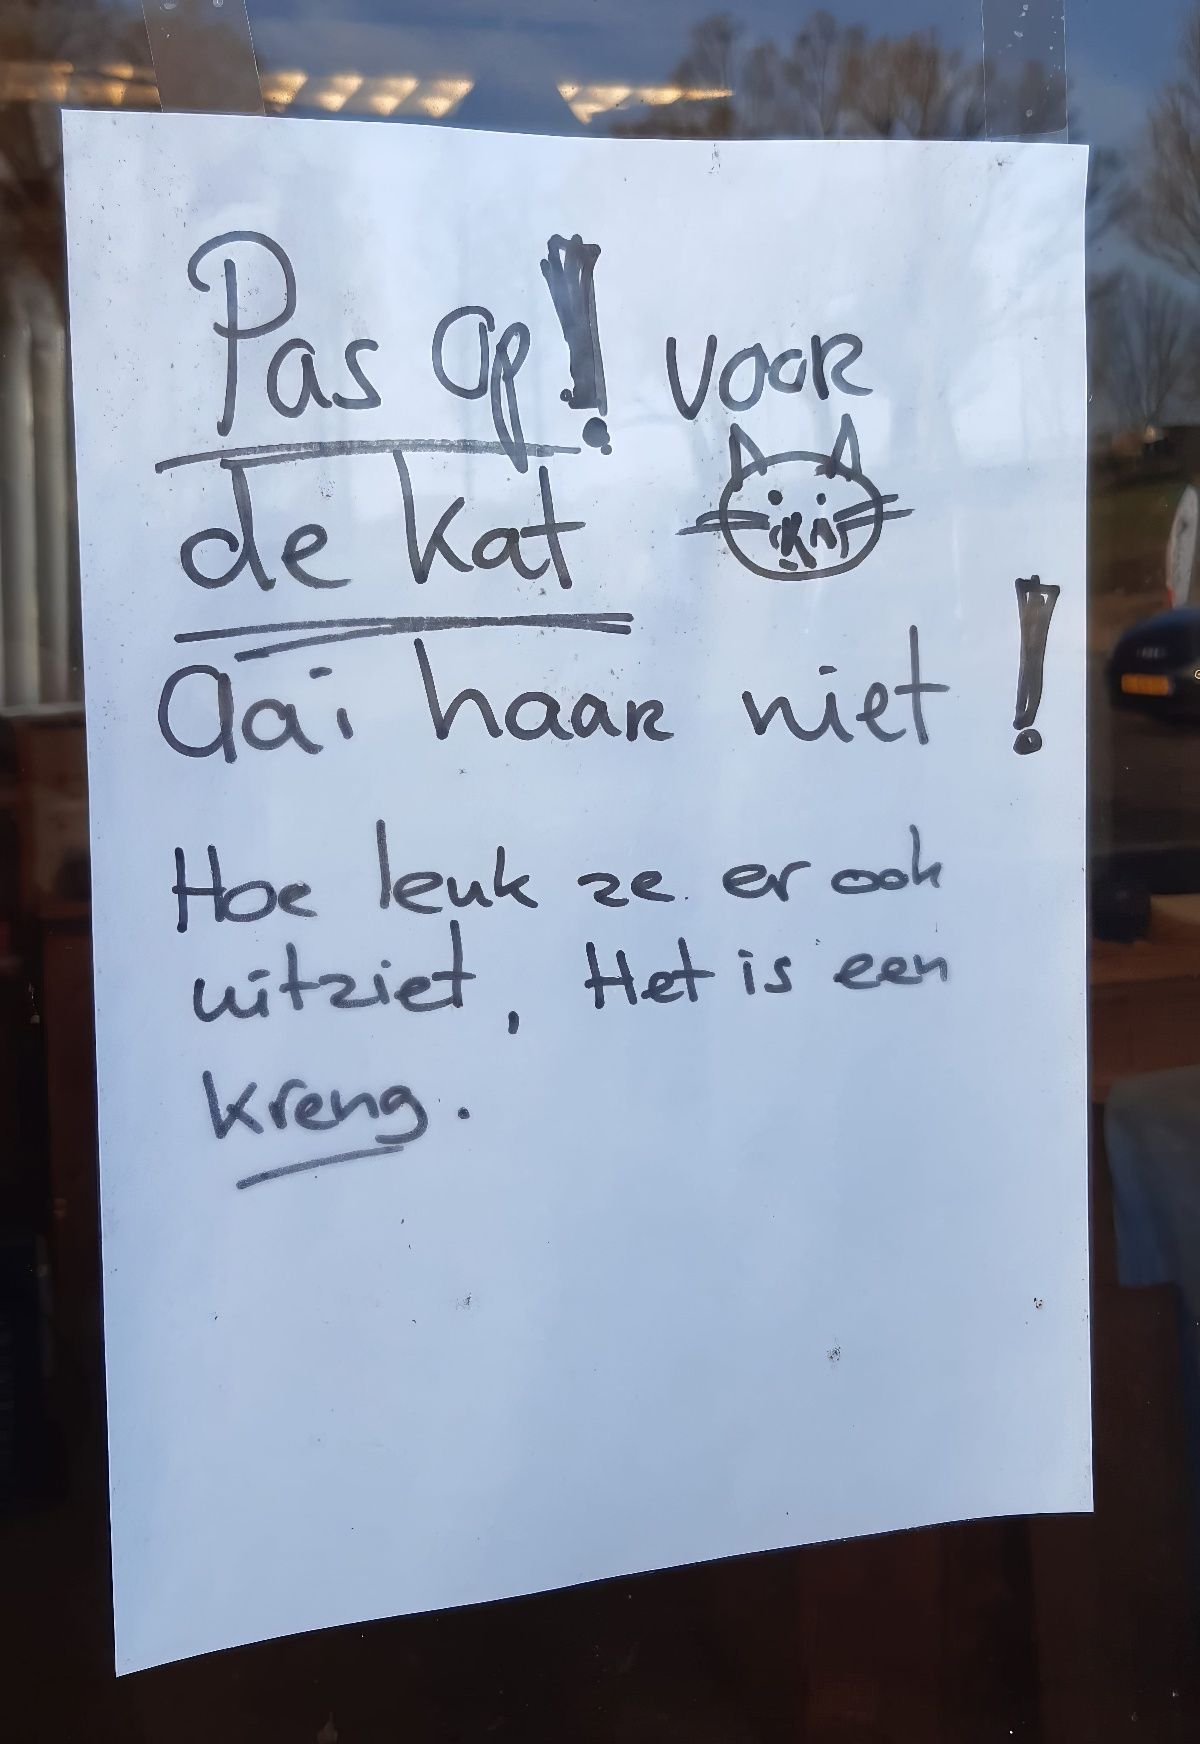 Pas op! voor
de kat
Aai haar niet!
Hoe leuk ze er ook
uitziet, Het is een
kreng.